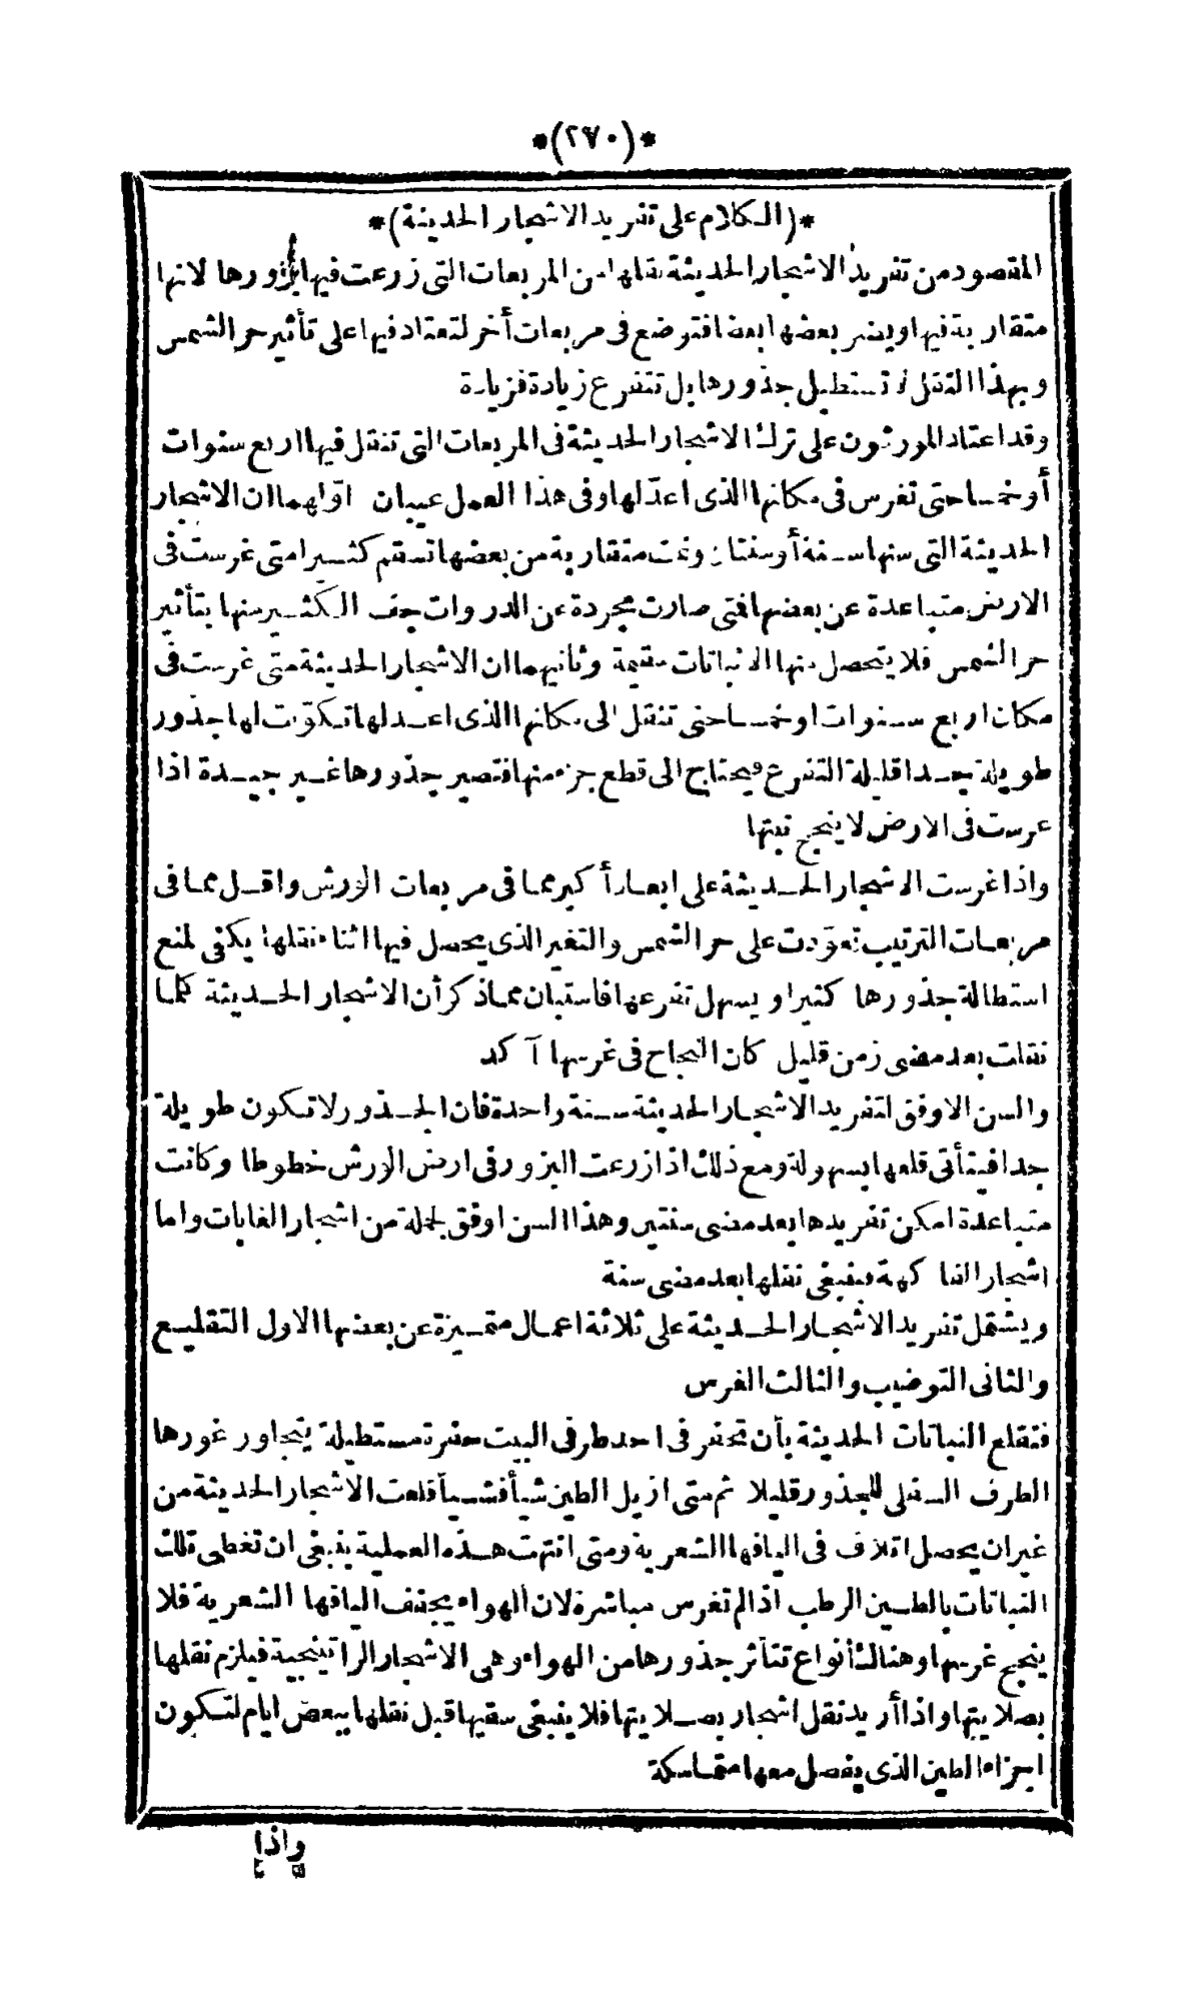 *(٢٧٠)*
*(الكلام على تفريد الاشجار الحديثة)*
المقصود من تفريد الاشجار الحديثة نقلها من المربعات التى زرعت فيها بزورها لانها
متقاربة فيها ويضر بعضها بعضا فتوضع فى مربعات أخر لتعتاد فيها على تأثير حر الشمس
وبهذا النقل لا تستطيل جذورها بل تتفرع زيادة فزيادة
وقد اعتاد المورثون على ترك الاشجار الحديثة فى المربعات التى تنقل فيها اربع سنوات
أو خمسا حتى تغرس فى مكانها الذى اعدّ لها وفى هذا العمل عيبان اوّلهما ان الاشجار
الحديثة التى سنها سنة أو سنتان ونمت متقاربة من بعضها تسقم كثيرا متى غرست فى
الارض متباعدة عن بعضها فتى صارت مجردة عن الدروات جف الكثير منها بتأثير
حر الشمس فلا يتحصل منها الا نباتات سقيمة وثانيهما ان الاشجار الحديثة متى غرست فى
مكان اربع سنوات او خمسا حتى تنقل الى مكانها الذى اعد لها تكوّنت لها جذور
طويلة جدا قليلة التفرع ويحتاج الى قطع جزء منها فتصير جذورها غير جيدة اذا
غرست فى الارض لا ينجح نبتها
واذا غرست الاشجار الحديثة على ابعاد أكبر مما فى مربعات الورش واقل مما فى
مربعات الترتيب تعوّدت على حر الشمس والتغير الذى يحصل فيها اثناء نقلها يكفى لمنع
استطالة جذورها كثيرا ويسهل تفرعها فاستبان مما ذكر أن الاشجار الحديثة كلما
نقلت بعد مضى زمن قليل كان النجاح فى غرسها آكد
والسن الاوفق لتفريد الاشجار الحديثة سنة واحدة فان الجذور لا تكون طويلة
جدا فيتأتى قلعها بسهولة ومع ذلك اذا زرعت البزور فى ارض الورش خطوطا وكانت
متباعدة امكن تفريدها بعد مضى سنتين وهذا السن اوفق لجملة من اشجار الغابات واما
اشجار الفاكهة فينبغى نقلها بعد مضى سنة
ويشتمل تفريد الاشجار الحديثة على ثلاثة اعمال متميزة عن بعضها الاول التقليع
والثانى التوضيب والثالث الغرس
فتقلع النباتات الحديثة بأن تحفر فى احد طرفى البيت حفرة مستطيلة يتجاور غورها
الطرف السفلى للجذور قليلا ثم متى ازيل الطين شيأ فشيأ قلعت الاشجار الحديثة من
غير ان يحصل اتلاف فى اليافها الشعرية ومتى انتهت هذه العملية ينبغى ان تغطى تلك
النباتات بالطين الرطب اذا لم تغرس مباشرة لان الهواء يجفف اليافها الشعرية فلا
ينجح غرسها وهناك أنواع تتأثر جذورها من الهواء وهى الاشجار الراتينجية فيلزم نقلها
بصلايتها واذا أريد نقل اشجار بصلايتها فلا ينبغى سقيها قبل نقلها ببعض ايام لتكون
اجزاء الطين الذى يفصل معها متماسكة
واذا